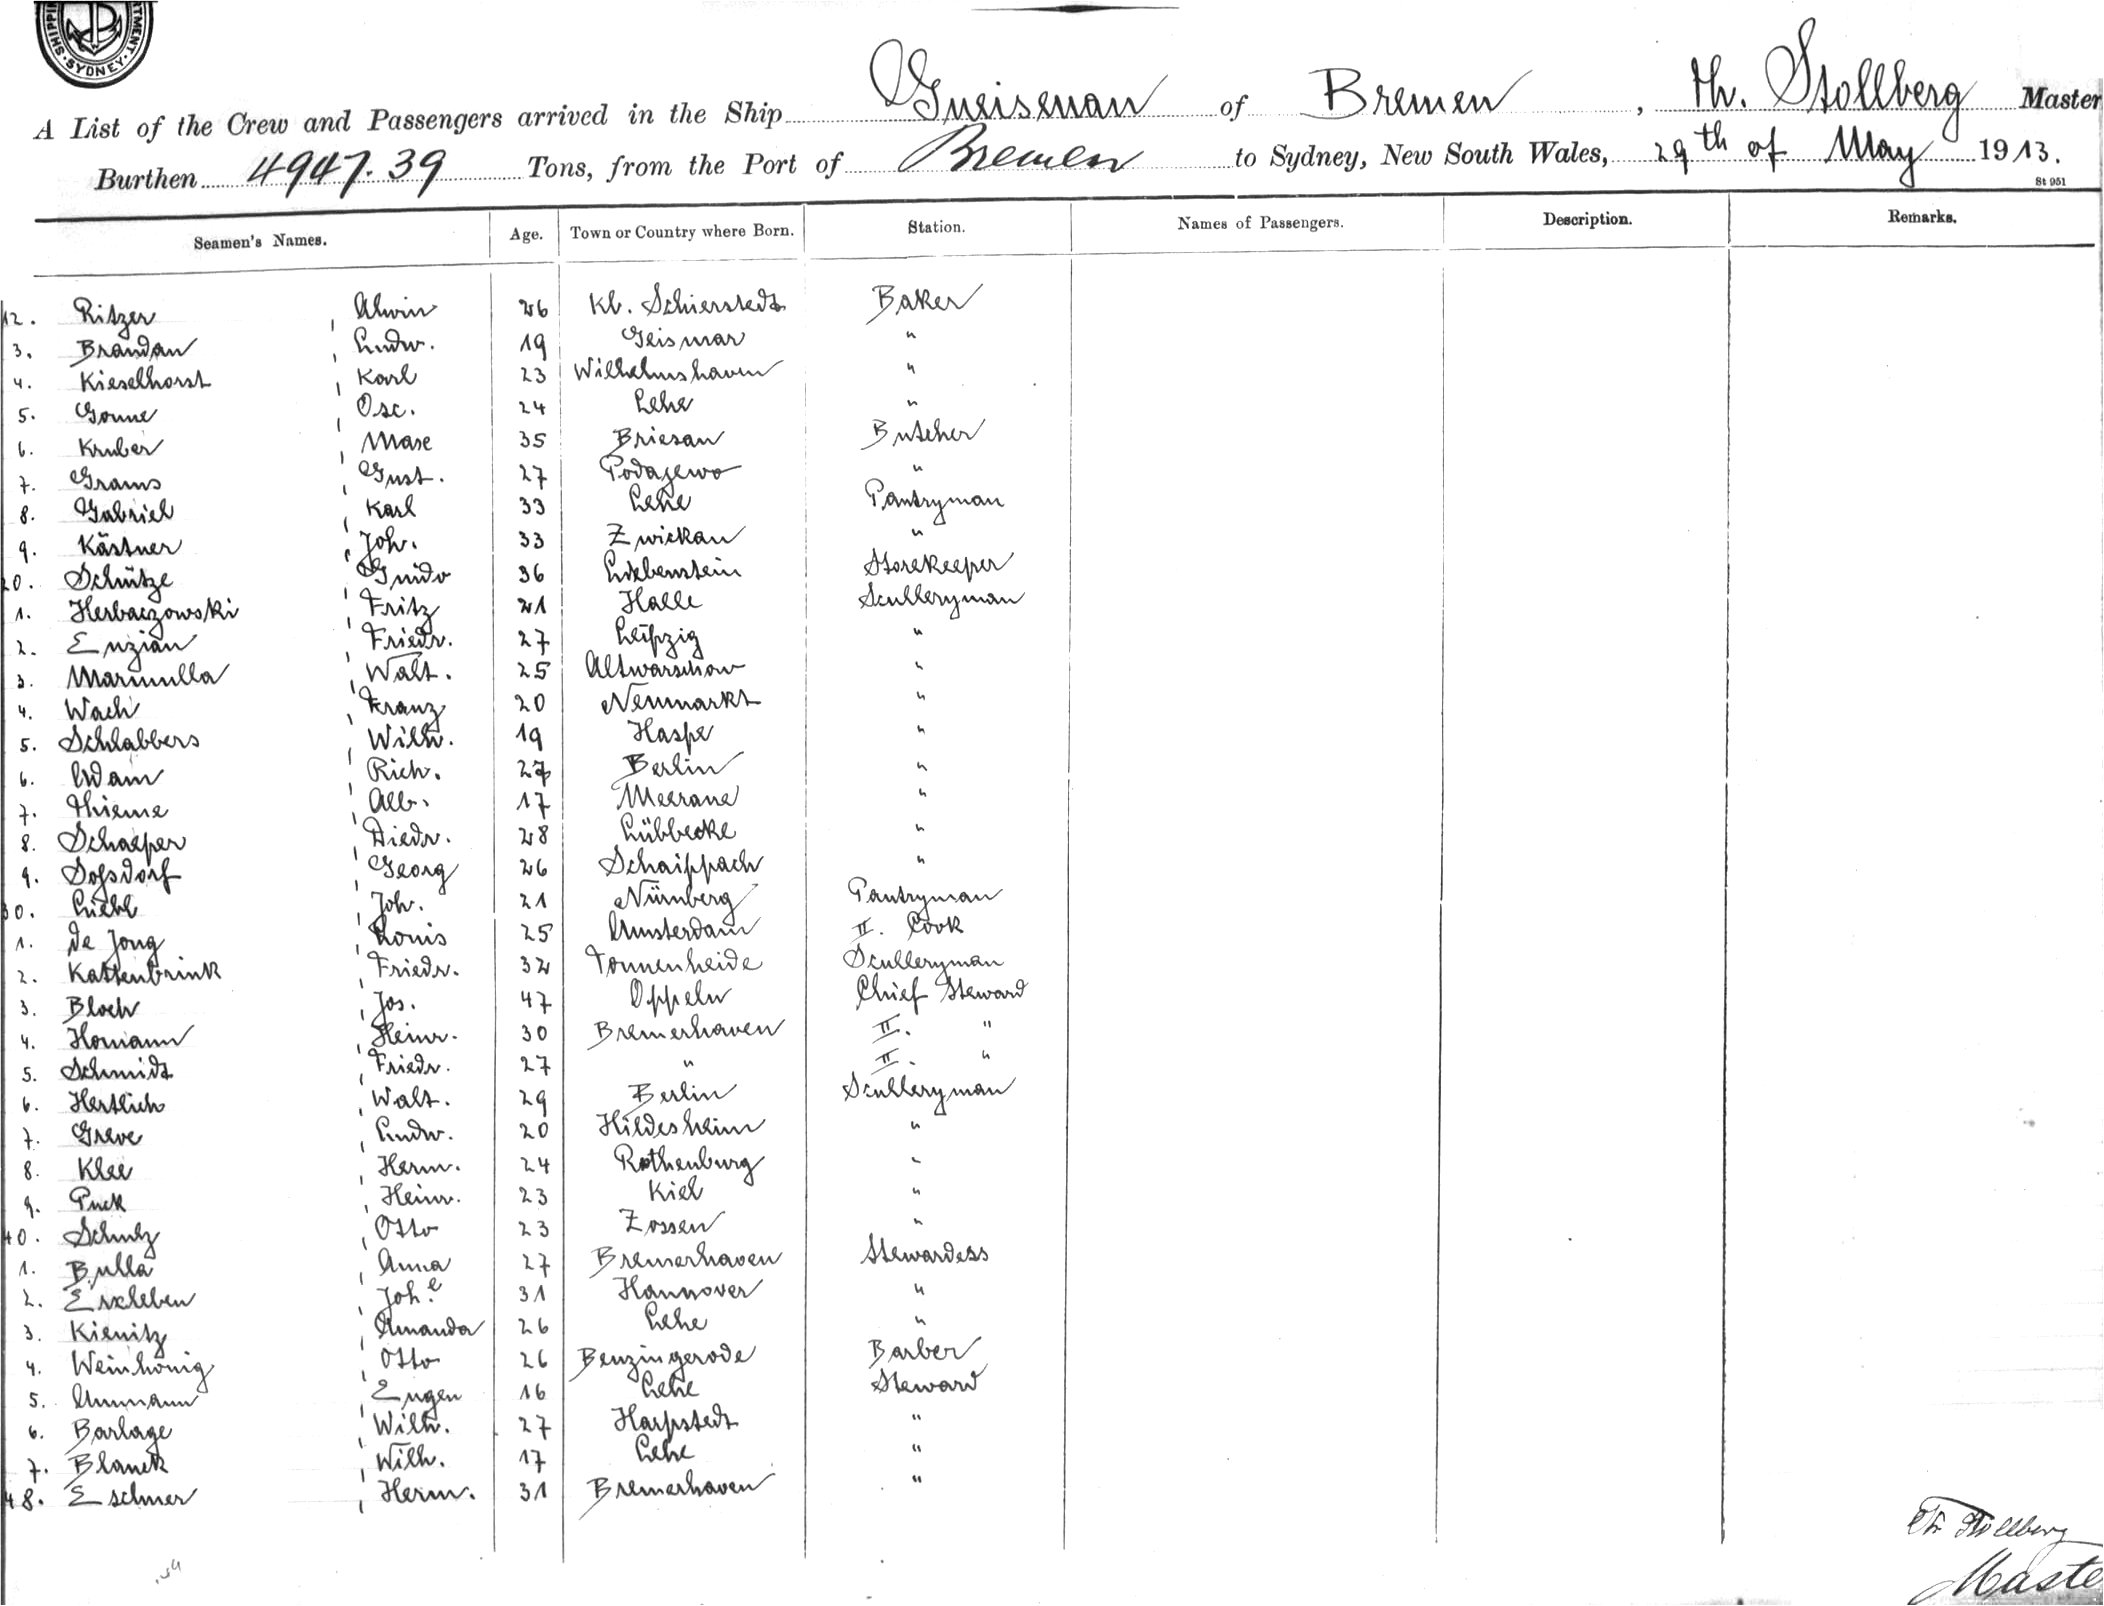 SHIPPING DEPARTMENT. SYDNEY.
A List of the Crew and Passengers arrived in the Ship Gneisenau of Bremen, Th. Stollberg Master
Burthen 4947.39 Tons, from the Port of Bremen to Sydney, New South Wales, 29th of May 1913.
St 951
Seamen's Names. Age. Town or Country where Born. Station. Names of Passengers. Description. Remarks.
12. Ritzer, Alwin 26 Kl. Schierstedt Baker
3. Brandau, Ludw. 19 Geismar "
4. Kieselhorst, Karl 23 Wilhelmshaven "
5. Gonne, Osc. 24 Lehe "
6. Kruber, Maxe 35 Briesau Butcher
7. Grams, Gust. 27 Podajewo "
8. Gabriel, Karl 33 Lehe Pantryman
9. Kästner, Joh. 33 Zwickau "
20. Schütze, Guido 36 Liebenstein Storekeeper
1. Herbaczowski, Fritz 21 Halle Sculleryman
2. Enzian, Friedr. 27 Leipzig "
3. Marmulla, Walt. 25 Altwarschow "
4. Wach, Franz 20 Neumarkt "
5. Schlabbers, Wilh. 19 Haspe "
6. Adam, Rich. 27 Berlin "
7. Thieme, Alb. 17 Meerane "
8. Schaeper, Diedr. 28 Lübbecke "
9. Doßdorf, Georg 26 Schaippach "
30. Liebl, Joh. 21 Nürnberg Pantryman
1. de Jong, Louis 25 Amsterdam II. Cook
2. Kattenbrink, Friedr. 32 Tonnenheide Sculleryman
3. Bloch, Jos. 47 Oppeln Chief Steward
4. Homann, Heinr. 30 Bremerhaven II. "
5. Schmidt, Friedr. 27 " II. "
6. Hertlich, Walt. 29 Berlin Sculleryman
7. Greve, Ludw. 20 Hildesheim "
8. Klee, Herm. 24 Rothenburg "
9. Puck, Heinr. 23 Kiel "
40. Schulz, Otto 23 Zossen "
1. Bulla, Anna 27 Bremerhaven Stewardess
2. Erxleben, Joh.e 31 Hannover "
3. Kienitz, Amanda 26 Lehe "
4. Weinhönig, Otto 26 Benzingerode Barber
5. Ummann, Eugen 16 Lehe Steward
6. Barlage, Wilh. 27 Harpstedt "
7. Blanck, Wilh. 17 Lehe "
48. Eschner, Herm. 31 Bremerhaven "
Th Stollberg
Maste